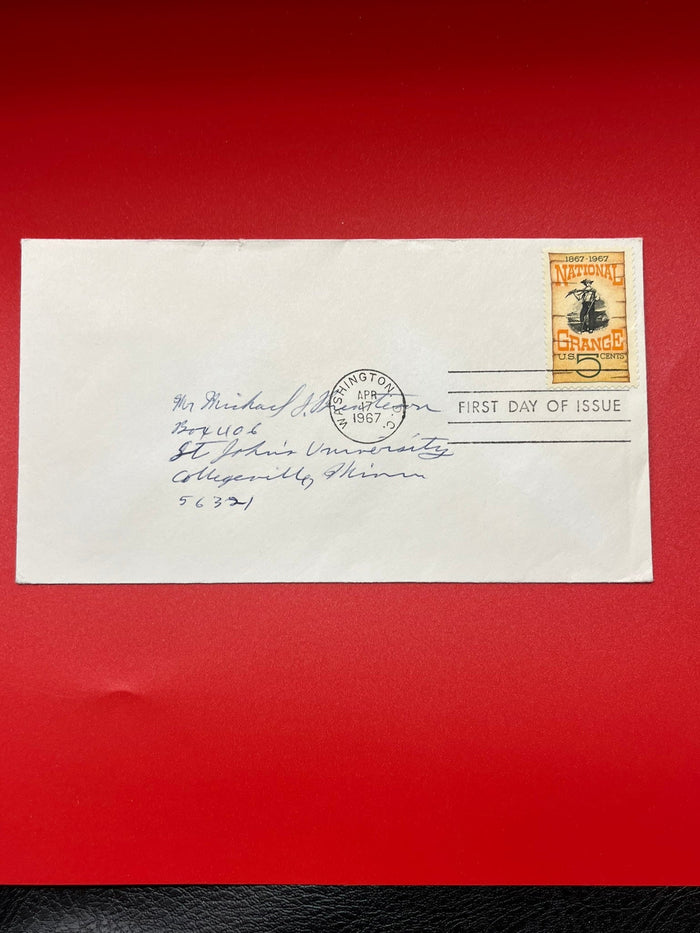 1867-1967
NATIONAL
GRANGE
U.S. 5 CENTS
WASHINGTON, D.C.
APR
17
1967
FIRST DAY OF ISSUE
Mr Michael J.
Box 406
St John's University
Collegeville, Minn
56321